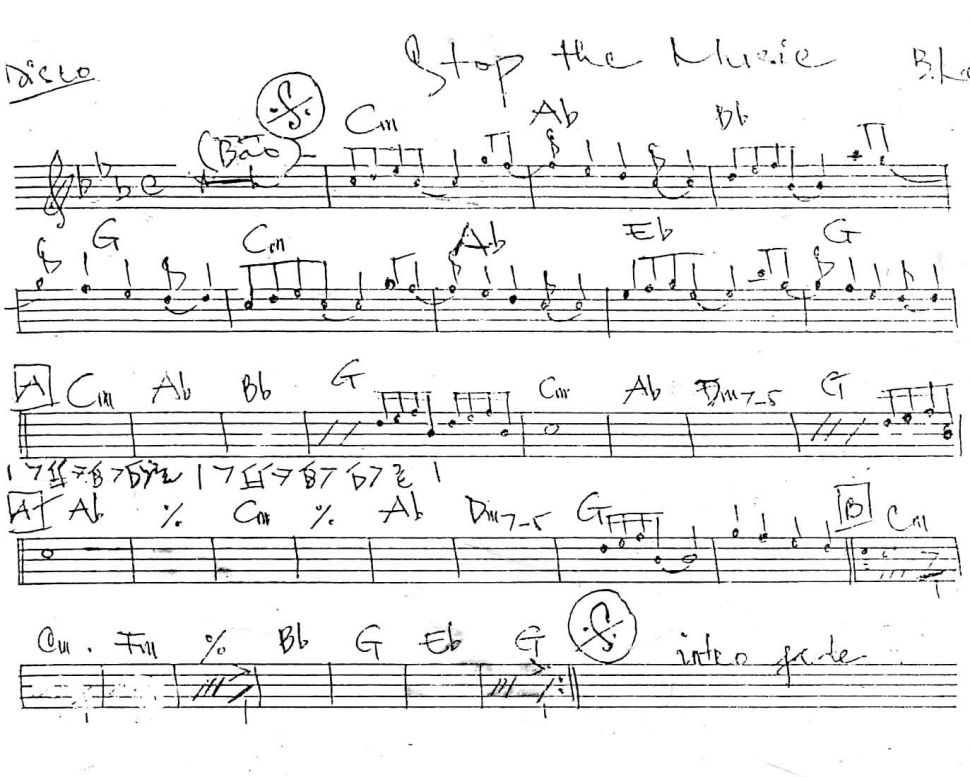 Disco Stop the Music
(Bac)
Cm Ab Bb
G Cm Ab Eb G
A Cm Ab Bb G Cm Ab Dm7-5 G
A Ab % Cm % Ab Dm7-5 G B Cm
Cm. Fm % Bb G Eb G intro fade